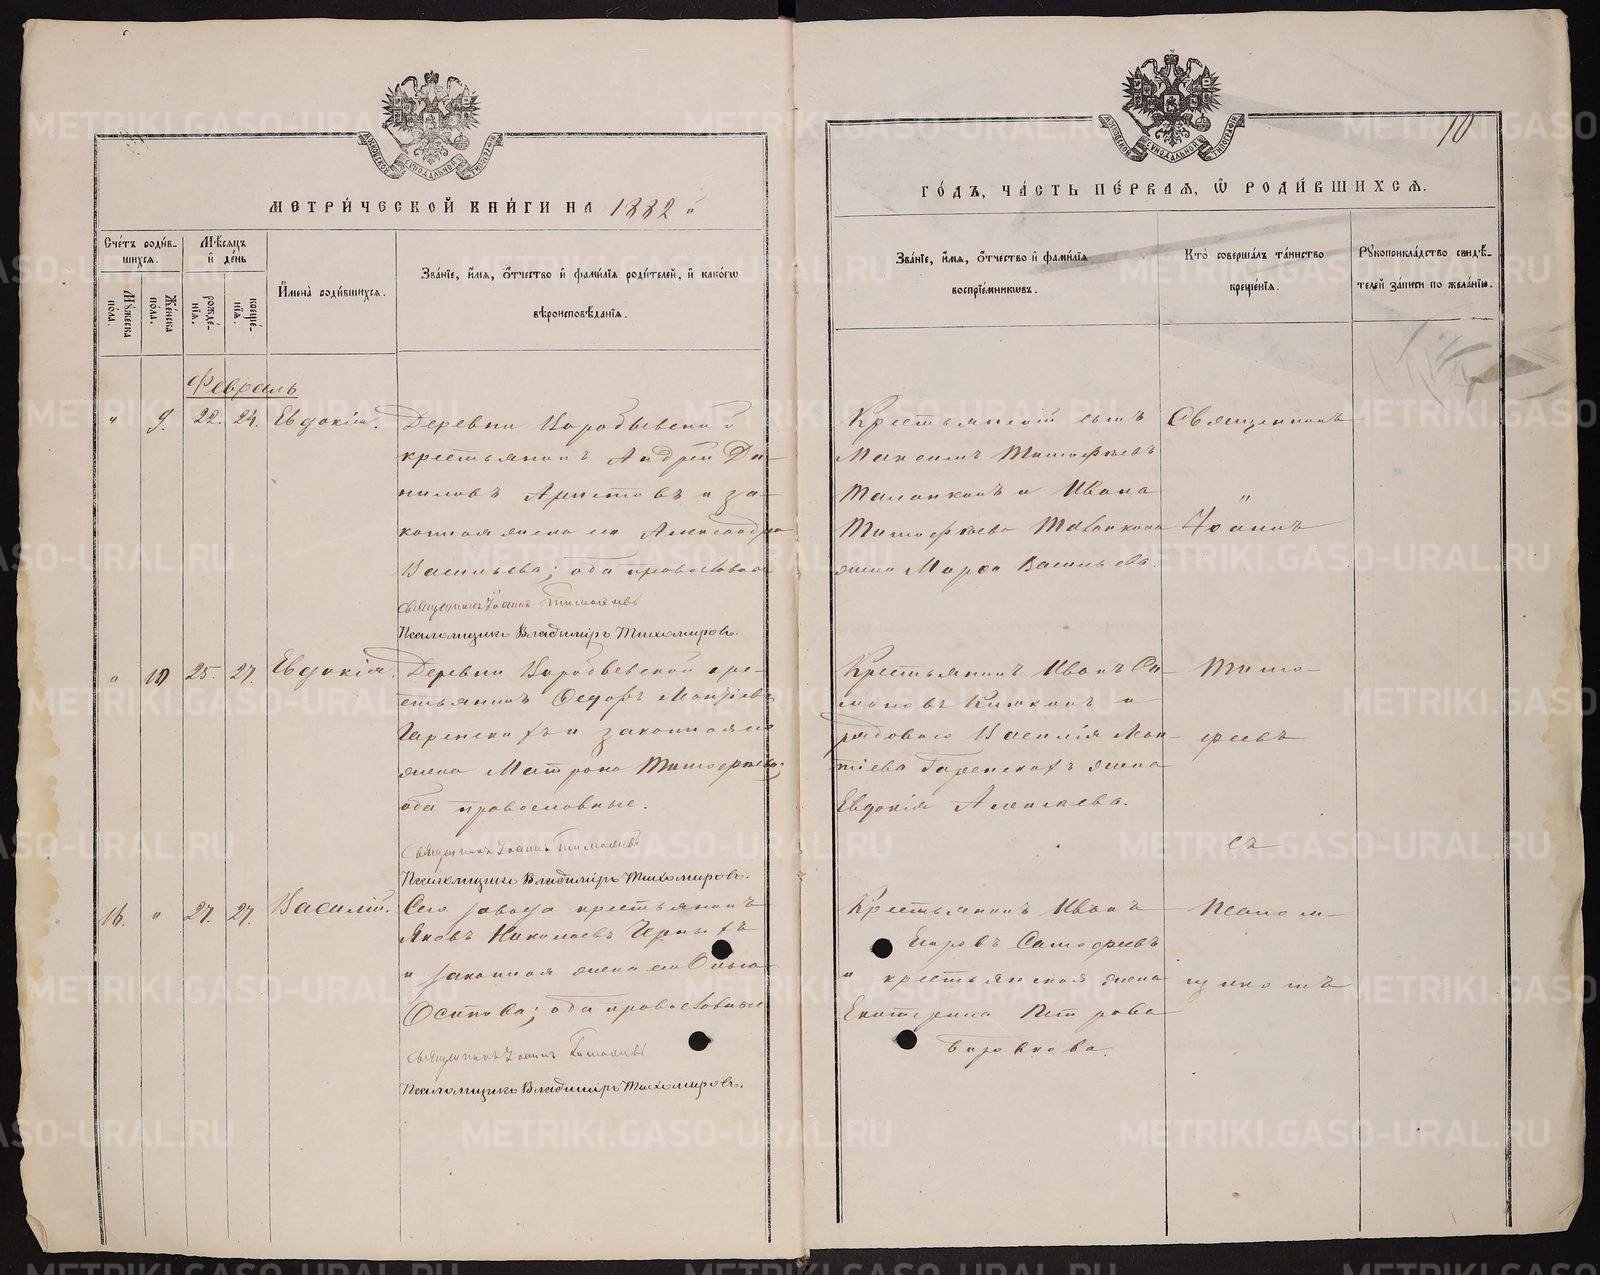 10
МЕТРИ́ЧЕСКОЙ КНИ́ГИ НА 1882 й
ГО́ДЪ, ЧА́СТЬ ПЕ́РВАЯ, Ѿ РОДИ́ВШИХСЯ.
Сче́тъ роди́в-
шихся.
Мꙋ́жеска по́ла.
Же́нска по́ла.
Мѣ́сяцъ и҆ де́нь
рожде́-
нїя.
креще́-
нїя.
И҆мена̀ роди́вшихся.
Зва́нїе, и҆́мя, ѻ҆́тчество и҆ фами́лїя роди́телей, и҆ како́гѡ
вѣроисповѣ́данїя.
Зва́нїе, и҆́мя, ѻ҆́тчество и҆ фами́лїя
воспрїе́мникѡвъ.
Кто̀ соверша́лъ та́инство
креще́нїя.
Рꙋкоприкла́дство свидѣ́-
телей за́писи по жела́нїю.
Февраль
" 9. 22. 24. Евдокія.
Деревни Коробьевской
крестьянинъ Андрей Да-
ниловъ Аристовъ и за-
конная жена его Александра
Васильева; оба православные
Священникъ Іоаннъ Тимофеевъ
Псаломщикъ Владиміръ Тихомировъ.
Крестьянскій сынъ
Максимъ Тимофѣевъ
Таланкинъ и Ивана
Тимофѣева Таланкина
жена Марфа Васильева.
Священникъ
"
Іоаннъ
" 10 25. 27. Евдокія.
Деревни Коробьевской кре-
стьянинъ Федоръ
Гаренскихъ и законная его
жена Матрона Тимофѣева;
оба православные.
Священникъ Іоаннъ Тимофеевъ
Псаломщикъ Владиміръ Тихомировъ.
Крестьянинъ Иванъ
и
рядового Василія
Гаренскихъ жена
Евдокія Алексѣева.
Тимо-
феевъ
съ
16. " 27. 27. Василій.
Сего завода крестьянинъ
Яковъ Николаевъ Черныхъ
и законная жена его Ольга
Осипова; оба православные
Священникъ Іоаннъ Тимофеевъ
Псаломщикъ Владиміръ Тихомировъ.
Крестьянинъ Иванъ
Егоровъ
и крестьянская жена
Екатерина Петрова
Бирюкова.
Псалом-
щикомъ
METRIKI.GASO-URAL.RU